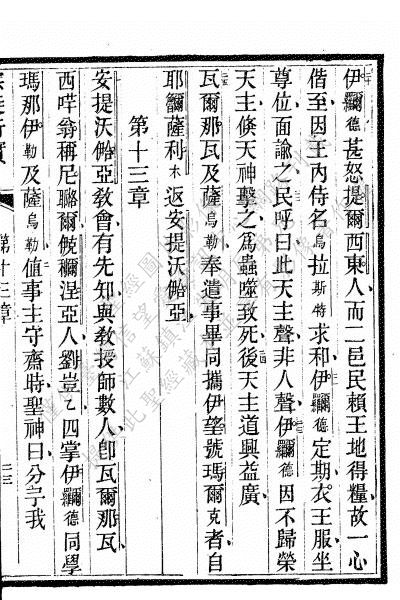 伊德甚怒提爾西東人而二邑民賴王地得糧故一心
偕至因王內侍名烏拉斯特求和伊德定期衣王服坐
尊位面諭之民呼曰此天主聲非人聲伊德因不歸榮
天主倏天神擊之爲蟲噬致死後天主道興益廣
瓦爾那瓦及薩烏勒奉遣事畢同攜伊望號瑪爾克者自
耶薩利木返安提沃亞
第十三章
安提沃亞教會有先知與教授師數人卽瓦爾那瓦
西哶翁稱尼爾涅亞人劉豈乙四掌伊德同學
瑪那伊勒及薩烏勒値事主守齋時聖神曰分予我
第十三章